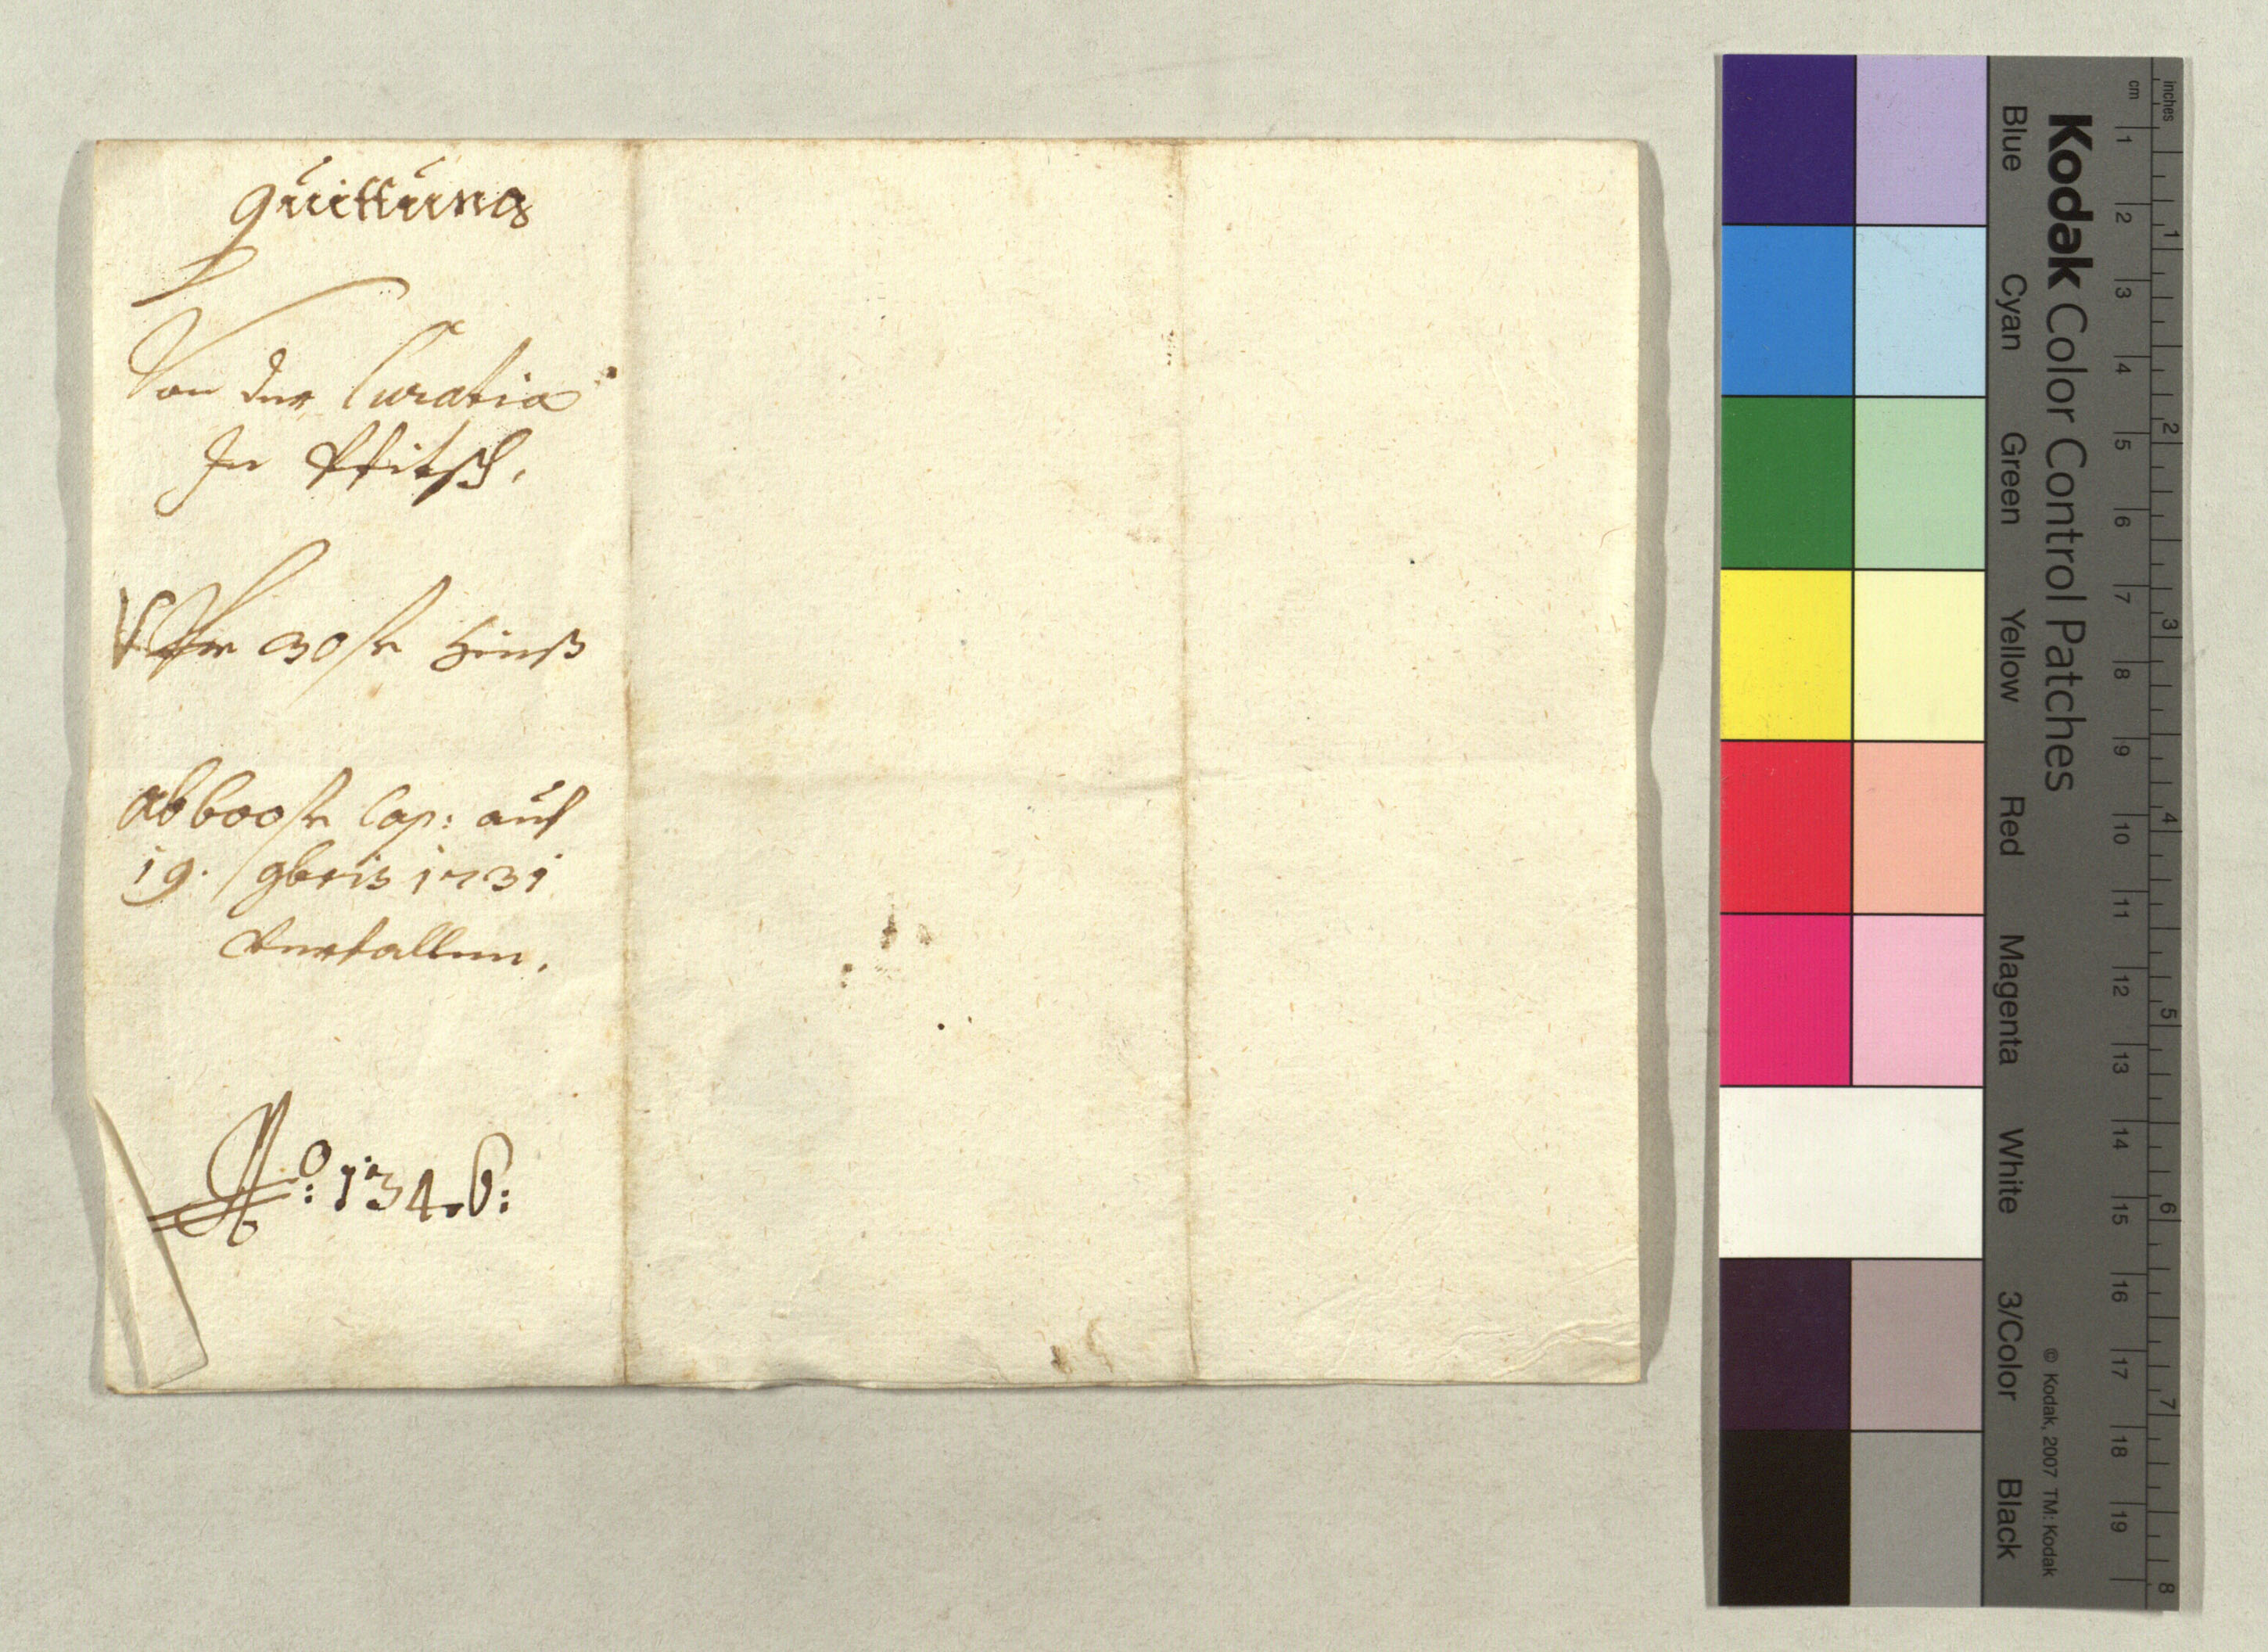 Quittung
Von der Curatia
In Pfitsch,
Vber 30 fr Zinß
ab 600 fr Cap: auf
19. 9bris 1731
verfallen.
No: 134.6:
inches
cm
1 2 3 4 5 6 7 8
1 2 3 4 5 6 7 8 9 10 11 12 13 14 15 16 17 18 19
Kodak Color Control Patches
© Kodak, 2007 TM: Kodak
Blue Cyan Green Yellow Red Magenta White 3/Color Black